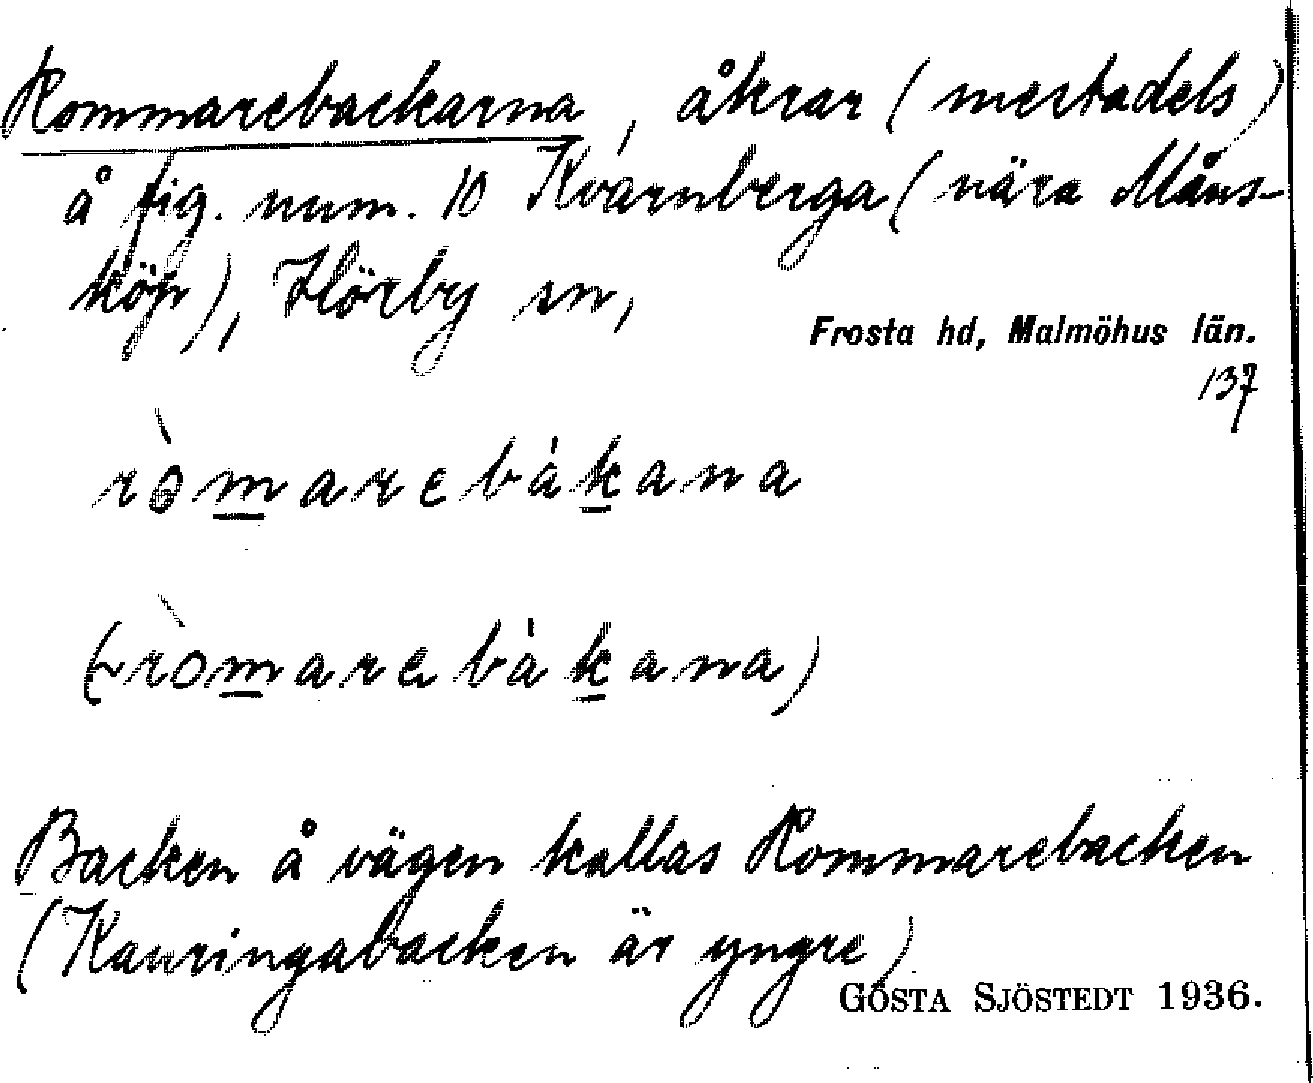 Rommarebackarna, åkrar (mestadels)
å fig. num. 10 Kvarnberga (nära Måns-
köp), Hörby sn,
Frosta hd, Malmöhus län.
137
ròmarebàkana
(~ròmarebàkana)
Backen å vägen kallas Rommarebacken
(Kauringabacken är yngre)
GÖSTA SJÖSTEDT 1936.